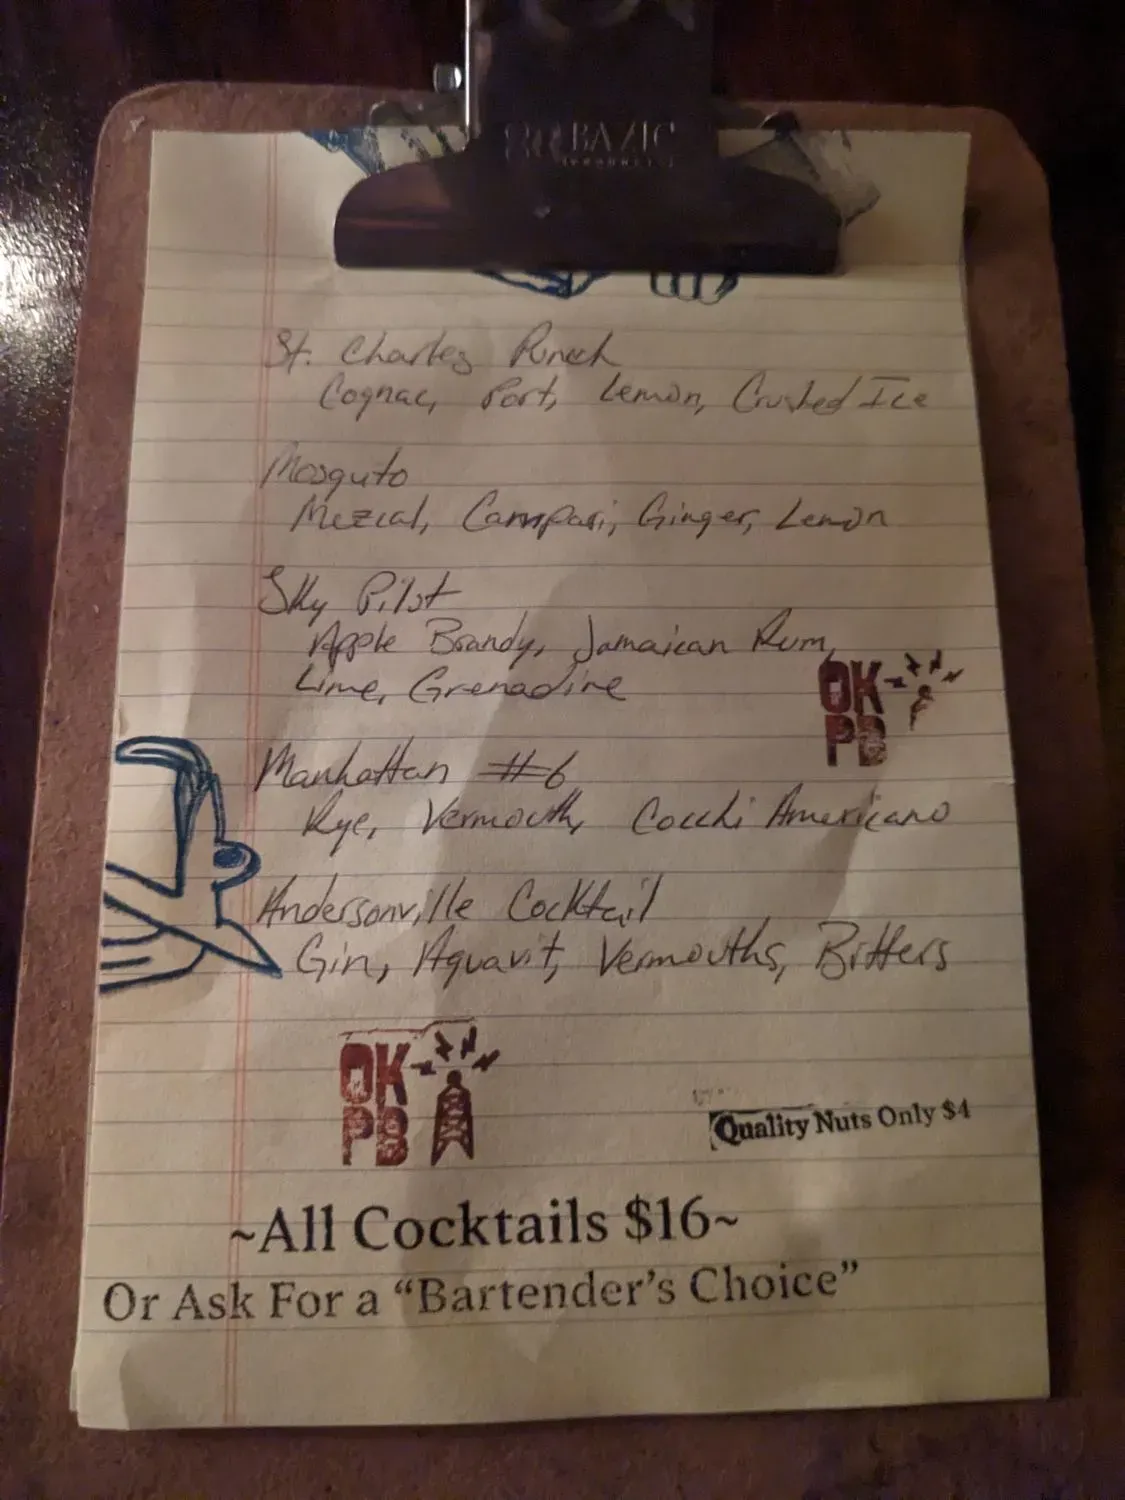 BAZIC
St. Charles Punch
Cognac, Port, Lemon, Crushed Ice
Mosquto
Mezcal, Campari, Ginger, Lemon
Sky Pilot
Apple Brandy, Jamaican Rum,
Lime, Grenadine
OK
PB
Manhattan #6
Rye, Vermouth, Cocchi Americano
Andersonville Cocktail
Gin, Aquavit, Vermouths, Bitters
OK
PB
Quality Nuts Only $4
~All Cocktails $16~
Or Ask For a “Bartender’s Choice”